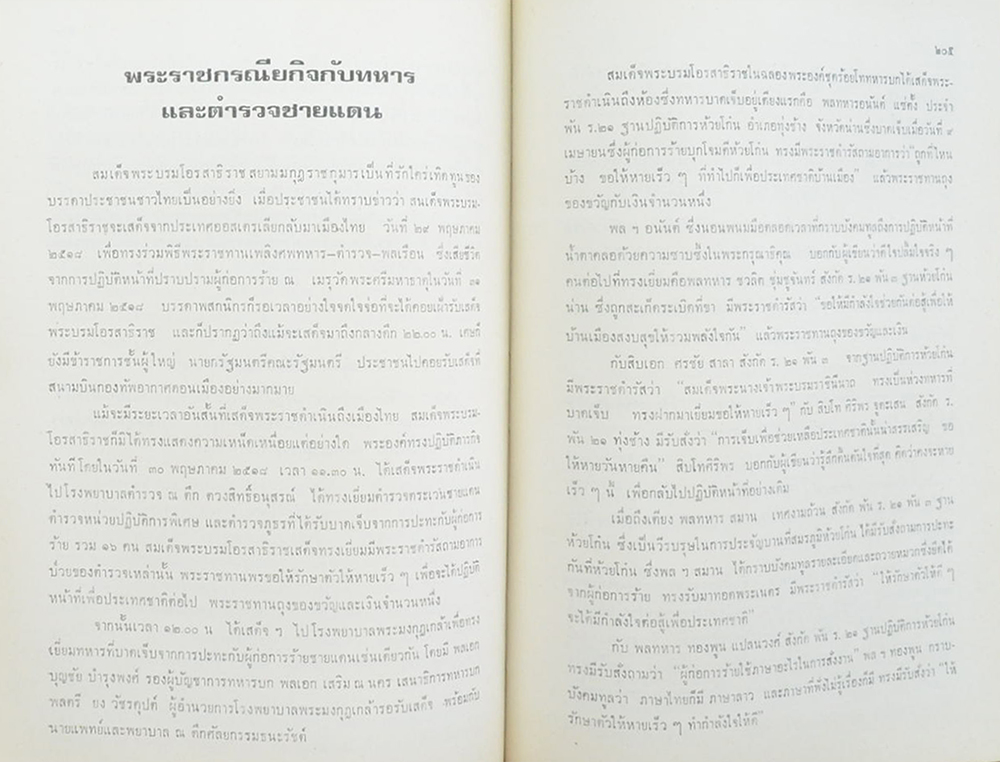 พระราชกรณียกิจกับทหาร
และตำรวจชายแดน
สมเด็จพระบรมโอรสาธิราช สยามมกุฎราชกุมารเป็นที่รักใคร่เทิดทูนของ
บรรดาประชาชนชาวไทยเป็นอย่างยิ่ง เมื่อประชาชนได้ทราบข่าวว่า สมเด็จพระบรม-
โอรสาธิราชจะเสด็จจากประเทศออสเตรเลียกลับมาเมืองไทย วันที่ ๒๙ พฤษภาคม
๒๕๑๘ เพื่อทรงร่วมพิธีพระราชทานเพลิงศพทหาร-ตำรวจ-พลเรือน ซึ่งเสียชีวิต
จากการปฏิบัติหน้าที่ปราบปรามผู้ก่อการร้าย ณ เมรุวัดพระศรีมหาธาตุในวันที่ ๓๑
พฤษภาคม ๒๕๑๘ บรรดาพสกนิกรก็รอเวลาอย่างใจจดใจจ่อที่จะได้คอยเฝ้ารับเสด็จ
พระบรมโอรสาธิราช และก็ปรากฏว่าถึงแม้จะเสด็จมาถึงกลางดึก ๒๒.๐๐ น. เศษก็
ยังมีข้าราชการชั้นผู้ใหญ่ นายกรัฐมนตรีคณะรัฐมนตรี ประชาชนไปคอยรับเสด็จที่
สนามบินกองทัพอากาศดอนเมืองอย่างมากมาย
แม้จะมีระยะเวลาอันสั้นที่เสด็จพระราชดำเนินถึงเมืองไทย สมเด็จพระบรม-
โอรสาธิราชก็มิได้ทรงแสดงความเหน็ดเหนื่อยแต่อย่างใด พระองค์ทรงปฏิบัติภารกิจ
ทันทีโดยในวันที่ ๓๐ พฤษภาคม ๒๕๑๘ เวลา ๑๑.๓๐ น. ได้เสด็จพระราชดำเนิน
ไปโรงพยาบาลตำรวจ ณ ตึก ดวงสิทธิ์อนุสรณ์ ได้ทรงเยี่ยมตำรวจตระเวนชายแดน
ตำรวจหน่วยปฏิบัติการพิเศษ และตำรวจภูธรที่ได้รับบาดเจ็บจากการปะทะกับผู้ก่อการ
ร้าย รวม ๑๖ คน สมเด็จพระบรมโอรสาธิราชเสด็จทรงเยี่ยมมีพระราชดำรัสถามอาการ
ป่วยของตำรวจเหล่านั้น พระราชทานพรขอให้รักษาตัวให้หายเร็ว ๆ เพื่อจะได้ปฏิบัติ
หน้าที่เพื่อประเทศชาติต่อไป พระราชทานถุงของขวัญและเงินจำนวนหนึ่ง
จากนั้นเวลา ๑๒.๐๐ น ได้เสด็จ ฯ ไปโรงพยาบาลพระมงกุฎเกล้าเพื่อทรง
เยี่ยมทหารที่บาดเจ็บจากการปะทะกับผู้ก่อการร้ายชายแดนเช่นเดียวกัน โดยมี พลเอก
บุญชัย บำรุงพงศ์ รองผู้บัญชาการทหารบก พลเอก เสริม ณ นคร เสนาธิการทหารบก
พลตรี ยง วัชรคุปต์ ผู้อำนวยการโรงพยาบาลพระมงกุฎเกล้ารอรับเสด็จ พร้อมกับ
นายแพทย์และพยาบาล ณ ตึกศัลยกรรมธนะรัชต์
สมเด็จพระบรมโอรสาธิราชในฉลองพระองค์ชุดร้อยโททหารบกได้เสด็จพระ-
ราชดำเนินถึงห้องซึ่งทหารบาดเจ็บอยู่เตียงแรกคือ พลทหารอนันต์ แซ่ตั้ง ประจำ
พัน ร.๒๑ ฐานปฏิบัติการห้วยโก๋น อำเภอทุ่งช้าง จังหวัดน่านซึ่งบาดเจ็บเมื่อวันที่ ๙
เมษายนซึ่งผู้ก่อการร้ายบุกโจมตีห้วยโก๋น ทรงมีพระราชดำรัสถามอาการว่า "ถูกที่ไหน
บ้าง ขอให้หายเร็ว ๆ ที่ทำไปก็เพื่อประเทศชาติบ้านเมือง" แล้วพระราชทานถุง
ของขวัญกับเงินจำนวนหนึ่ง
พล ฯ อนันต์ ซึ่งนอนพนมมือตลอดเวลาที่กราบบังคมทูลถึงการปฏิบัติหน้าที่
น้ำตาคลอด้วยความซาบซึ้งในพระกรุณาธิคุณ บอกกับผู้เขียนว่าดีใจปลื้มใจจริง ๆ
คนต่อไปที่ทรงเยี่ยมคือพลทหาร ชวลิต ชุ่มชูจันทร์ สังกัด ร. ๒๑ พัน ๓ ฐานห้วยโก๋น
น่าน ซึ่งถูกสะเก็ดระเบิดที่ขา มีพระราชดำรัสว่า "ขอให้มีกำลังใจช่วยกันต่อสู้เพื่อให้
บ้านเมืองสงบสุขให้รวมพลังใจกัน" แล้วพระราชทานถุงของขวัญและเงิน
กับสิบเอก ศรชัย สาลา สังกัด ร. ๒๑ พัน ๓ จากฐานปฏิบัติการห้วยโก๋น
มีพระราชดำรัสว่า "สมเด็จพระนางเจ้าพระบรมราชินีนาถ ทรงเป็นห่วงทหารที่
บาดเจ็บ ทรงฝากมาเยี่ยมขอให้หายเร็ว ๆ" กับ สิบโท ศิริพร จุตะเสน สังกัด ร.
พัน ๒๑ ทุ่งช้าง มีรับสั่งว่า "การเจ็บเพื่อช่วยเหลือประเทศชาตินั้นน่าสรรเสริญ ขอ
ให้หายวันหายคืน" สิบโทศิริพร บอกกับผู้เขียนว่ารู้สึกตื้นตันใจที่สุด คิดว่าคงจะหาย
เร็ว ๆ นี้ เพื่อกลับไปปฏิบัติหน้าที่อย่างเดิม
เมื่อถึงเตียง พลทหาร สมาน เทศงามถ้วน สังกัด พัน ร. ๒๑ พัน ๓ ฐาน
ห้วยโก๋น ซึ่งเป็นวีรบุรุษในการประจัญบานที่สมรภูมิห้วยโก๋น ได้มีรับสั่งถามการปะทะ
กันที่ห้วยโก๋น ซึ่งพล ฯ สมาน ได้กราบบังคมทูลรายละเอียดและถวายหมวกซึ่งยึดได้
จากผู้ก่อการร้าย ทรงรับมาทอดพระเนตร มีพระราชดำรัสว่า "ให้รักษาตัวให้ดี ๆ
จะได้มีกำลังใจต่อสู้เพื่อประเทศชาติ"
กับ พลทหาร ทองพูน แปลนวงศ์ สังกัด พัน ร. ๒๑ ฐานปฏิบัติการห้วยโก๋น
ทรงมีรับสั่งถามว่า "ผู้ก่อการร้ายใช้ภาษาอะไรในการสั่งงาน" พล ฯ ทองพูน กราบ-
บังคมทูลว่า ภาษาไทยก็มี ภาษาลาว และภาษาที่ฟังไม่รู้เรื่องก็มี ทรงมีรับสั่งว่า "ให้
รักษาตัวให้หายเร็ว ๆ ทำกำลังใจให้ดี"